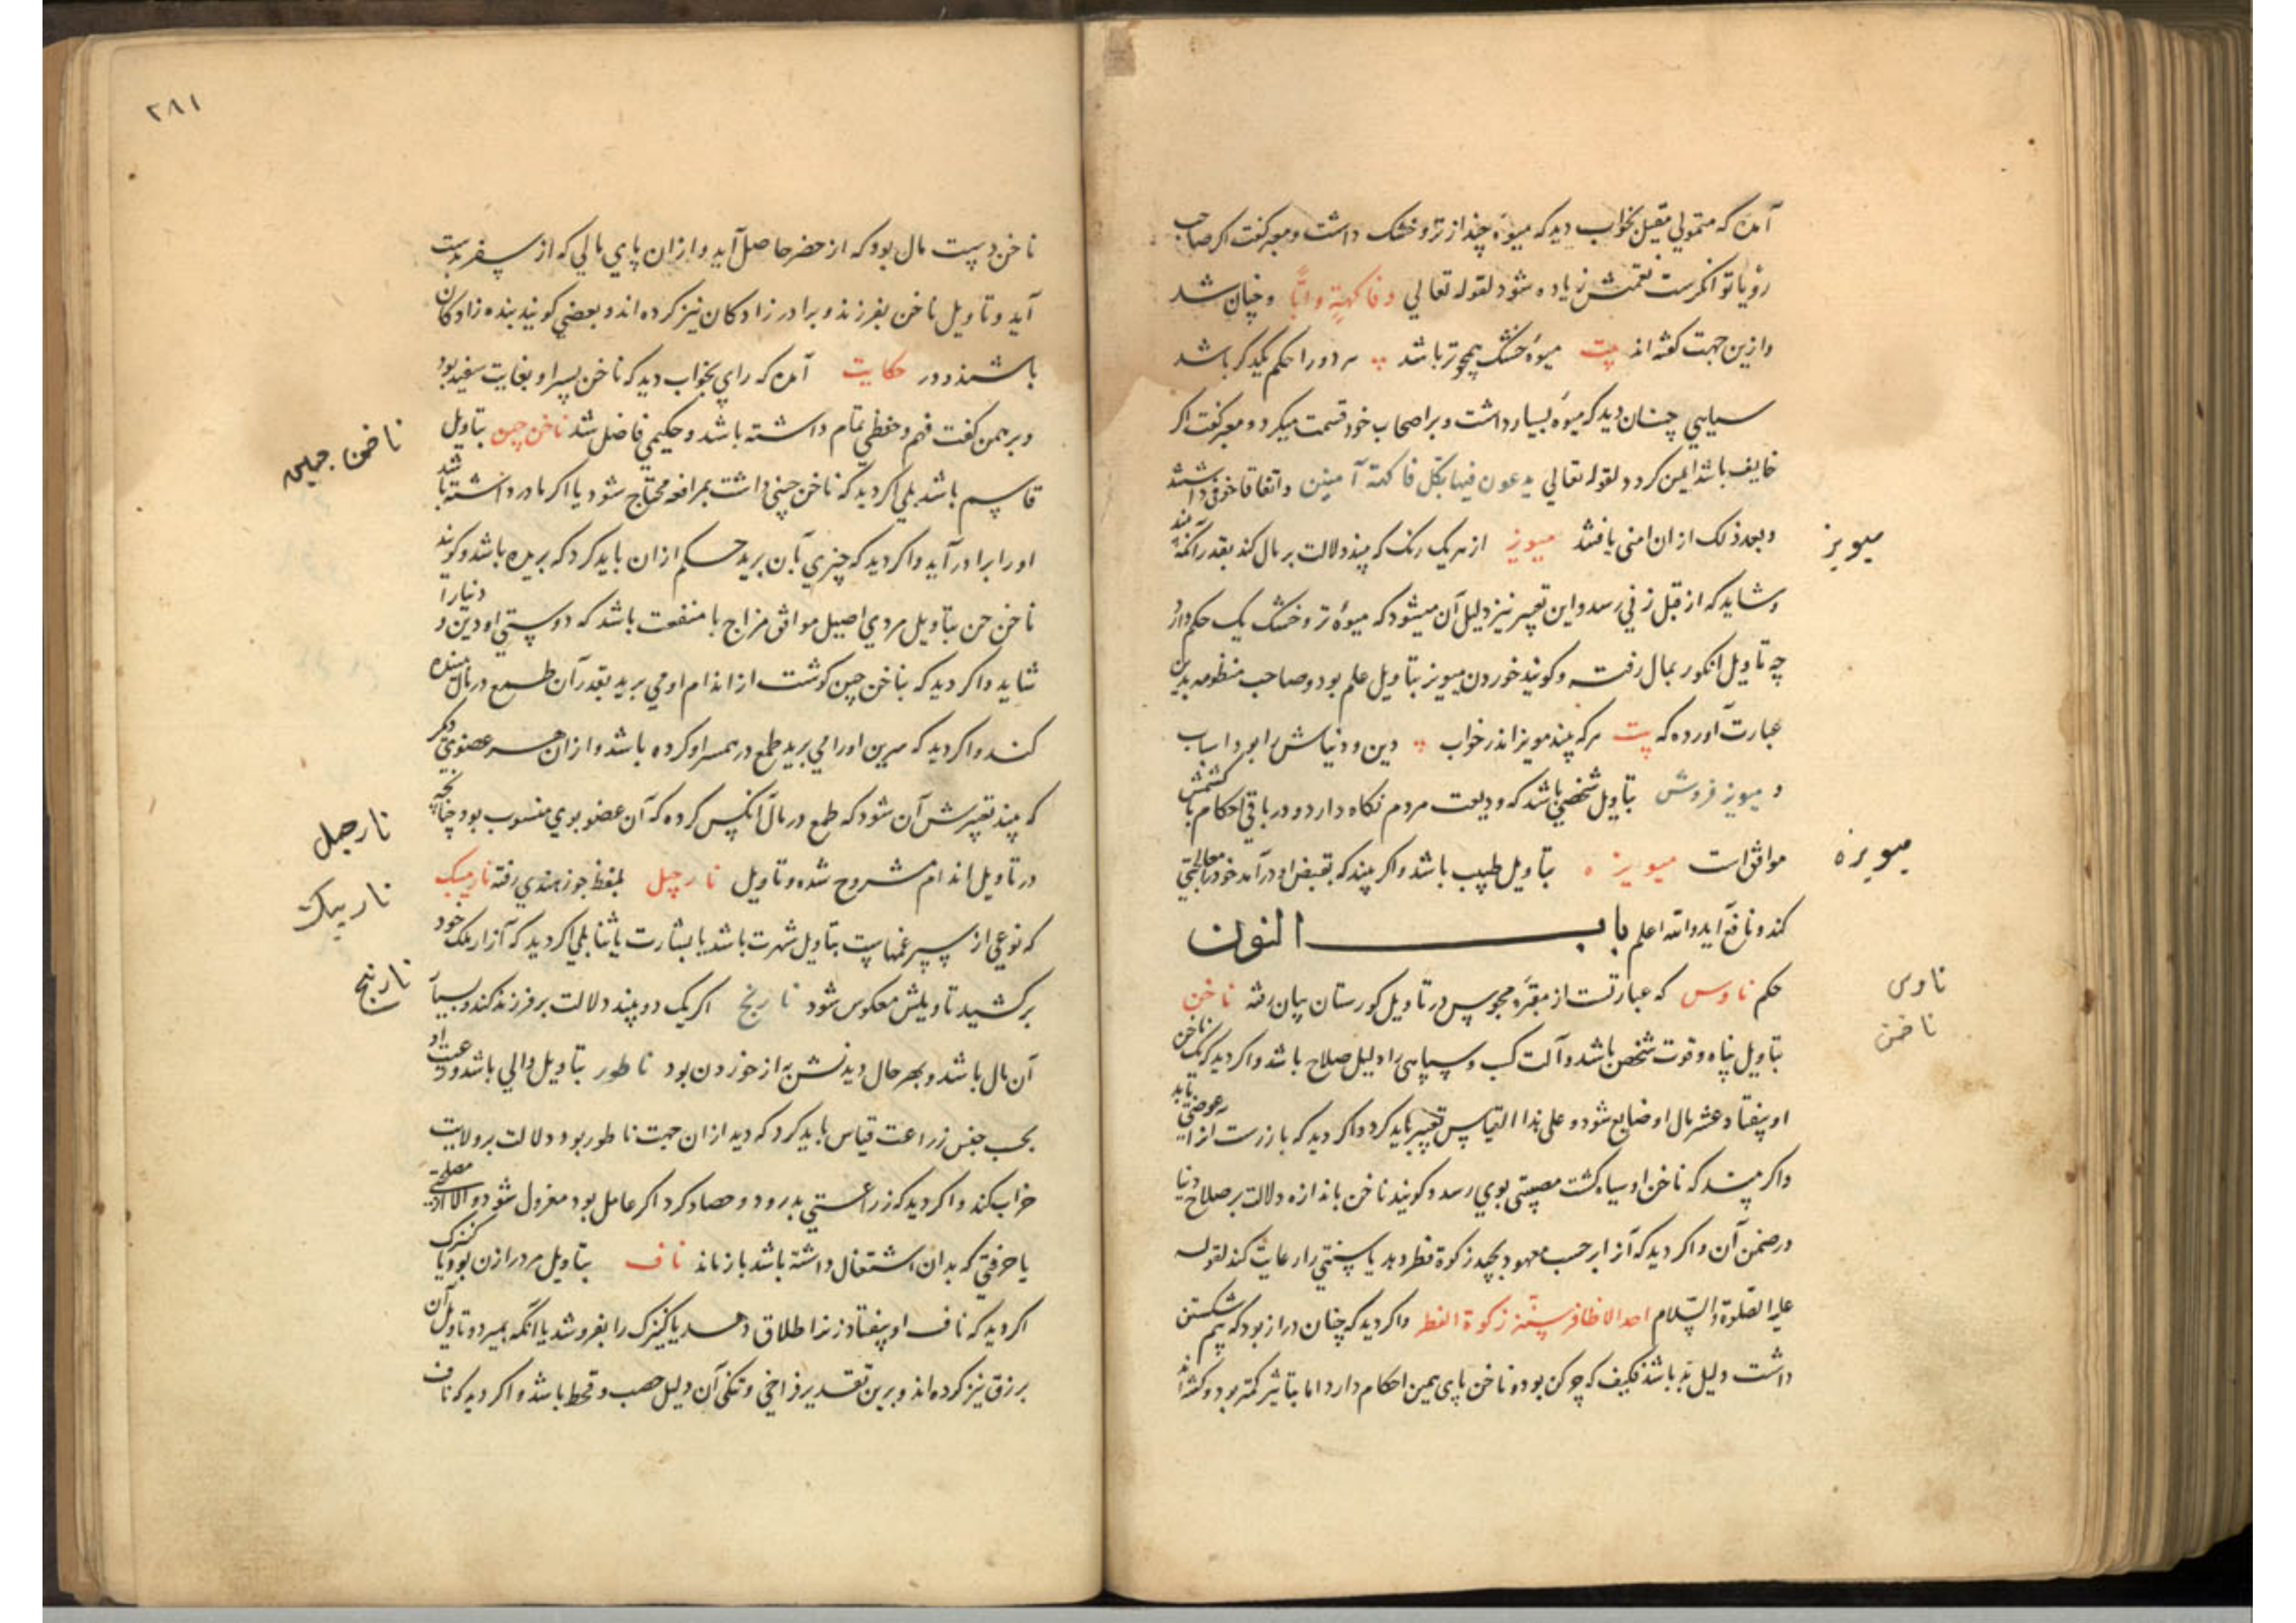 آمده که متمولی مقیل بخواب دید که میوهٔ چند از تر و خشک داشت و معبر گفت اگر صاحب
رؤیا توانگرست نعمتش زیاده شود لقوله تعالی وفاکهة وابّا و چنان شد
وازین جهت گفته اند بیت میوهٔ خشک همچو تر باشد هر دو را حکم یکدگر باشد
سپاهیی چنان دید که میوهٔ بسیار داشت و بر اصحاب خود قسمت میکرد و معبر گفت اگر
خایف باشد ایمن گردد لقوله تعالی یدعون فیها بکل فاکهة آمنین و اتفاقا خوفی داشتند
میویز
وبعد ذلک ازان امنی یافتند میویز از هر یک رنگ که بیند دلالت بر مال کند بقدر آنکه بیند
وشاید که از قبل زنی رسد واین تعبیر نیز دلیل آن میشود که میوهٔ تر و خشک یک حکم دارد
چه تاویل انگور بمال رفت و گویند خوردن میویز بتاویل علم بود و صاحب منظومه بدین
عبارت آورده که بیت هر که بیند مویز اندر خواب دین و دنیاش را بود اسباب
و میویز فروش بتاویل شخصی باشد که ودیعت مردم نگاه دارد و در باقی احکام با کشمش
میویزه
موافق است میویزه بتاویل طبیب باشد واگر بیند که بقبض او درآمد خود معالجتی
کند و نافع آید والله اعلم باب النون
ناوس
حکم ناوس که عبارتست از مقبرهٔ مجوس در تاویل گورستان بیان رفته ناخن
ناخن
بتاویل پناه و قوت شخص باشد و آلت کسب و سپاهی را دلیل صلاح باشد واگر دید که یک ناخن
او بیفتاد عشر مال او ضایع شود و علی هذا القیاس تعبیر باید کرد واگر دید که باز رست ازان عوضی یابد
واگر بیند که ناخن او سیاه گشت مصیبتی بوی رسد و گویند ناخن باندازه دلالت بر صلاح دنیا
در ضمن آن واگر دید که آنرا بر حسب معهود بچید زکوة فطر دهد یا سنتی را رعایت کند لقوله
علیه الصّلوة والسّلام احد الاظافر سنّة زکوة الفطر واگر دید که چنان دراز بود که بیم شکستن
داشت دلیل بد باشد فکیف که چرکن بود و ناخن پای همین احکام دارد اما بتاثیر کمتر بود و گفته اند
۲۸۱
ناخن دست مال بود که از حضر حاصل آید وازان پای مالی که از سفر بدست
آید و تاویل ناخن بفرزند و برادر زادگان نیز کرده اند و بعضی گویند بنده زادگان
باشند و در حکایت آمده که رای بخواب دید که ناخن پسر او بغایت سفید بود
ناخن چین
و برهمن گفت فهم و حفظی تمام داشته باشد و حکیمی فاضل شد ناخن چین بتاویل
قاسم باشد بلی اگر دید که ناخن چینی داشت بمرافعه محتاج شود یا اگر مادر داشته باشد
او را برادر آید واگر دید که چیزی بآن برید حکم ازان باید کرد که بریده باشد و گویند
ناخن چن بتاویل مردی اصیل موافق مزاج با منفعت باشد که دوستی او دین و دنیا را
شاید واگر دید که بناخن چین گوشت از اندام او می برید بقدر آن طمع در مال بیننده
کند واگر دید که سرین او را می برید طمع در همسر او کرده باشد وازان هر عضوی دیگر
که بیند تعبیرش آن شود که طمع در مال آنکس کرده که آن عضو بوی منسوب بود چنانچه
نارجیل
در تاویل اندام مشروح شده و تاویل نارجیل بلفظ جوز هندی رفته نارمیک
نارمیک
که نوعی از سپرغمهاست بتاویل شهرت باشد یا بشارت یا ثنا بلی اگر دید که آنرا از ملک خود
نارنج
برکشید تاویلش معکوس شود نارنج اگر یک دو بیند دلالت بر فرزند کند و بسیار
آن مال باشد و بهر حال دیدنش به از خوردن بود ناطور بتاویل والی باشد و رعیت او
بحسب جنس زراعت قیاس باید کرد که دید ازان جهت ناطور بود و دلالت بر ولایت
خراب کند واگر دید که زراعتی بدرود و حصاد کرد اگر عامل بود معزول شود والا از مصلحتی
یا حرفتی که بدان اشتغال داشته باشد باز ماند ناف بتاویل مرد را زن بود یا کنیزک
اگر دید که ناف او بیفتاد زن را طلاق دهد یا کنیزک را بفروشد یا آنکه بمیرد و تاویل آن
برزق نیز کرده اند و برین تقدیر فراخی و تنگی آن دلیل خصب و قحط باشد واگر دید که ناف